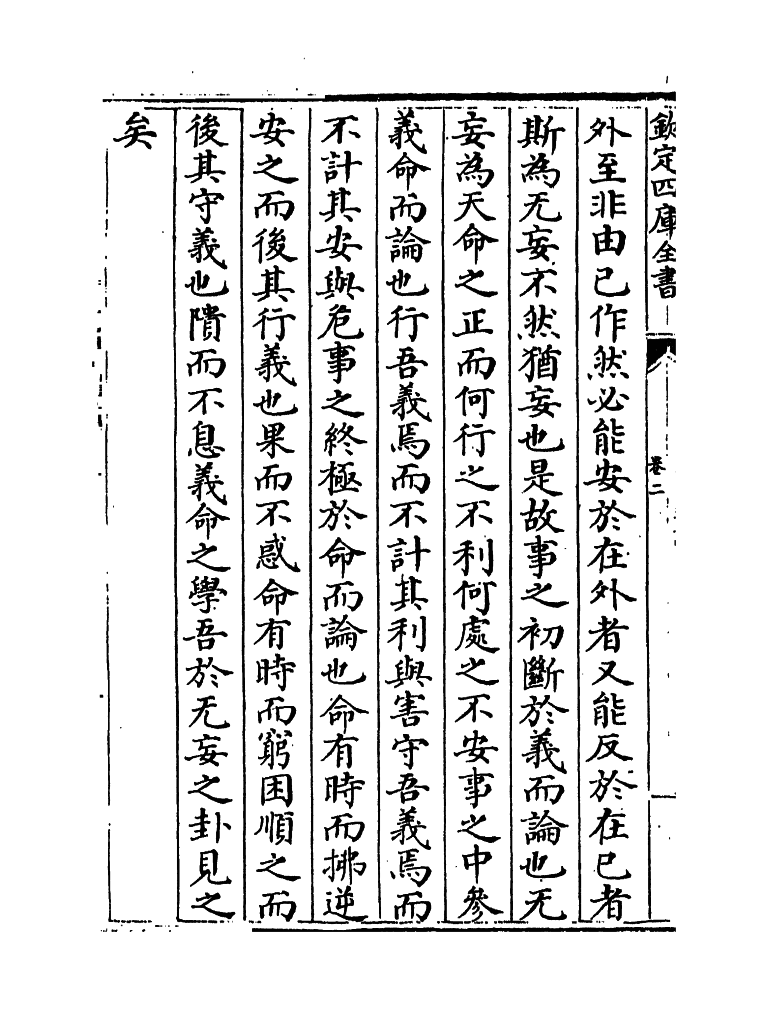 欽定四庫全書
卷二
外至非由已作然必能安於在外者又能反於在已者
斯為无妄不然猶妄也是故事之初斷於義而論也无
妄為天命之正而何行之不利何處之不安事之中參
義命而論也行吾義焉而不計其利與害守吾義焉而
不計其安與危事之終極於命而論也命有時而拂逆
安之而後其行義也果而不惑命有時而窮困順之而
後其守義也隤而不息義命之學吾於无妄之卦見之
矣